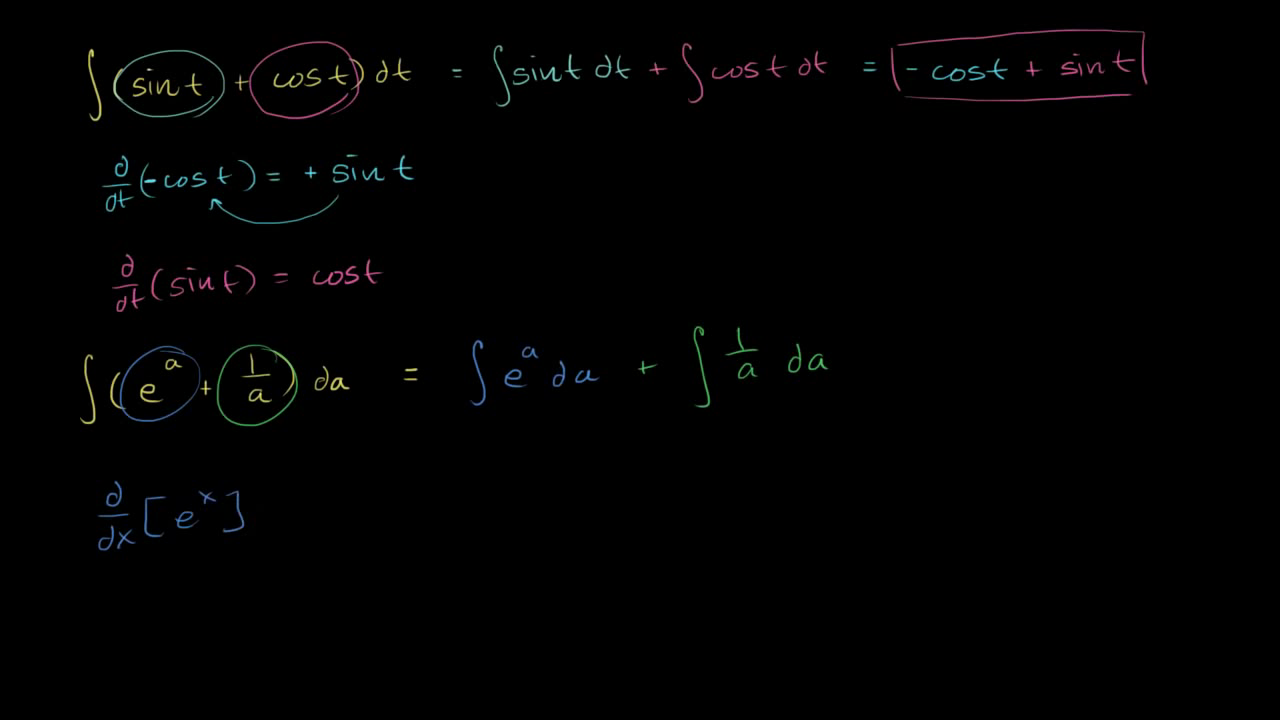 ∫(sin t + cos t) dt = ∫sin t dt + ∫cos t dt = -cos t + sin t
d/dt(-cos t) = + sin t
d/dt(sin t) = cos t
∫(e^a + 1/a) da = ∫e^a da + ∫1/a da
d/dx[e^x]